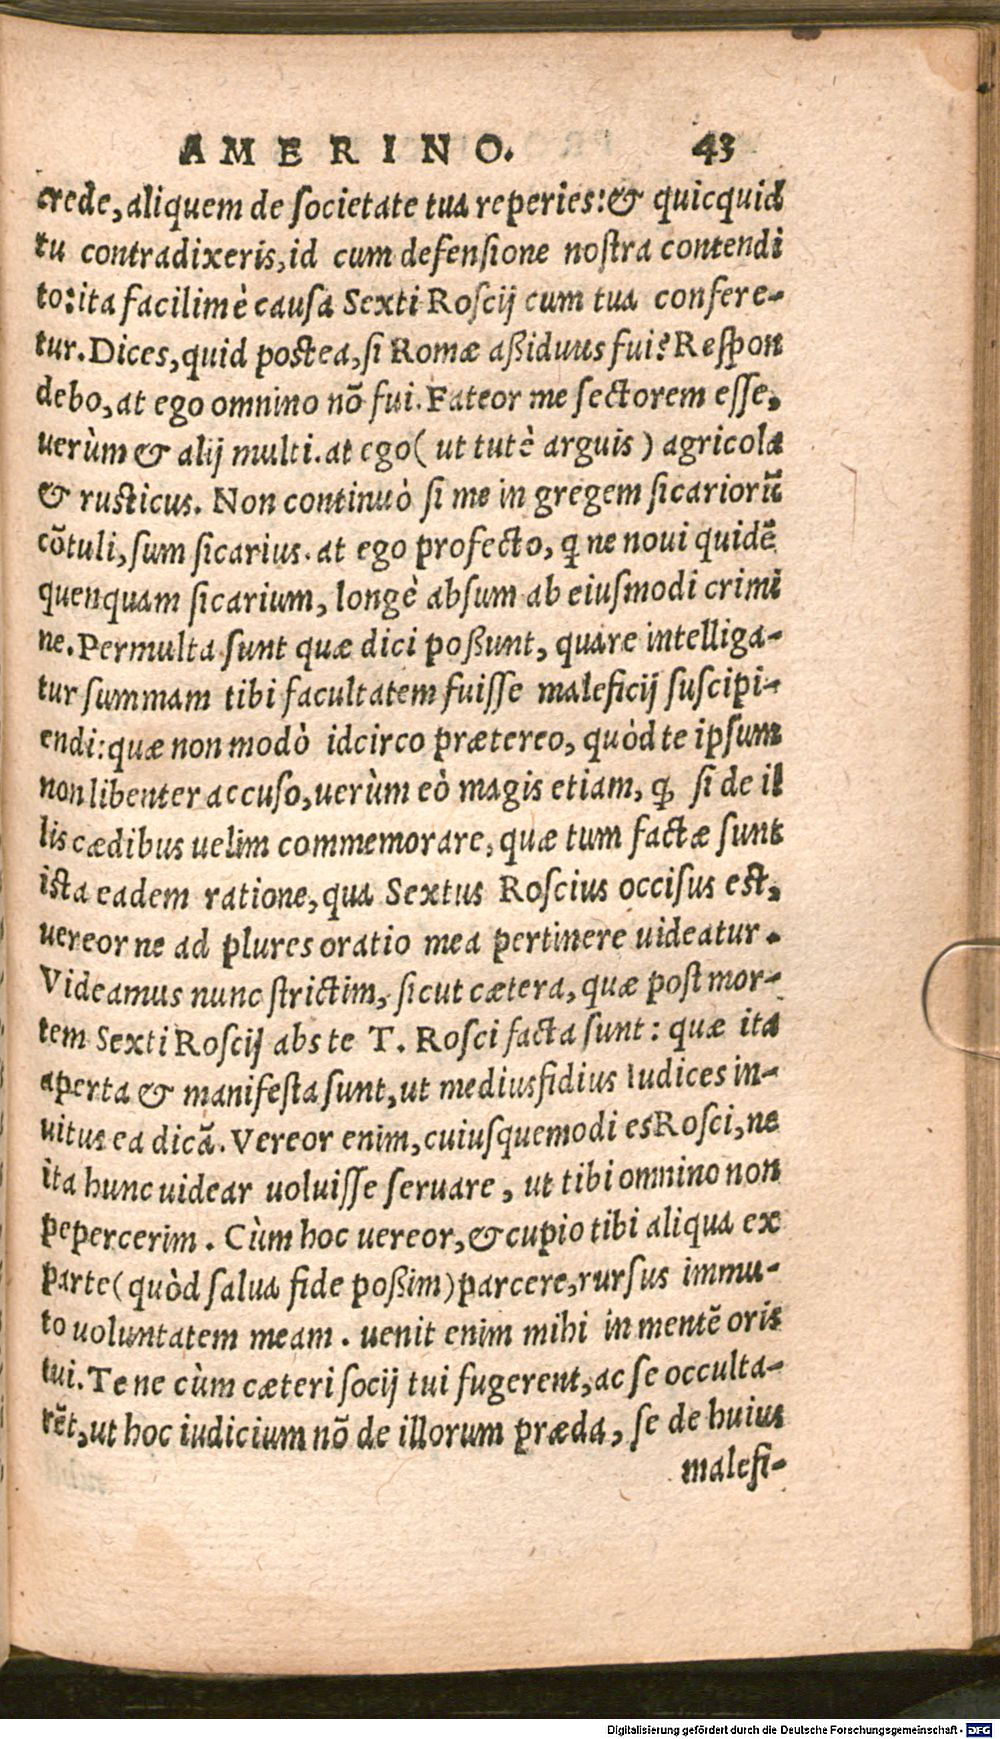 AMERINO. 43
crede, aliquem de ſocietate tua reperies: & quicquid
tu contradixeris, id cum defenſione noſtra contendi
to: ita facilimè cauſa Sexti Roſcij cum tua confere-
tur. Dices, quid postea, ſi Romæ aßiduus fui? Reſpon
debo, at ego omnino nō fui. Fateor me ſectorem eſſe,
uerùm & alij multi. at ego ( ut tutè arguis ) agricola
& ruſticus. Non continuò ſi me in gregem ſicariorū
cōtuli, ſum ſicarius. at ego profecto, q̃ ne noui quidē
quenquam ſicarium, longè abſum ab eiuſmodi crimi
ne. Permulta ſunt quæ dici poßunt, quare intelliga-
tur ſummam tibi facultatem fuiſſe maleficij ſuſcipi-
endi: quæ non modò idcirco prætereo, quòd te ipſum
non libenter accuſo, uerùm eò magis etiam, ꝙ ſi de il
lis cædibus uelim commemorare, quæ tum factæ ſunt
iſta eadem ratione, qua Sextus Roſcius occiſus eſt,
uereor ne ad plures oratio mea pertinere uideatur.
Videamus nunc ſtrictim, ſicut cætera, quæ poſt mor-
tem Sexti Roſcij abs te T. Roſci facta ſunt: quæ ita
aperta & manifeſta ſunt, ut mediusfidius Iudices in-
uitus ea dicā. Vereor enim, cuiuſquemodi es Roſci, ne
ita hunc uidear uoluiſſe ſeruare, ut tibi omnino non
pepercerim. Cùm hoc uereor, & cupio tibi aliqua ex
parte (quòd ſalua fide poßim) parcere, rurſus immu-
to uoluntatem meam. uenit enim mihi in mentē oris
tui. Te ne cùm cæteri ſocij tui fugerent, ac ſe occulta-
rēt, ut hoc iudicium nō de illorum præda, ſe de huius
malefi-
Digitalisierung gefördert durch die Deutsche Forschungsgemeinschaft - DFG